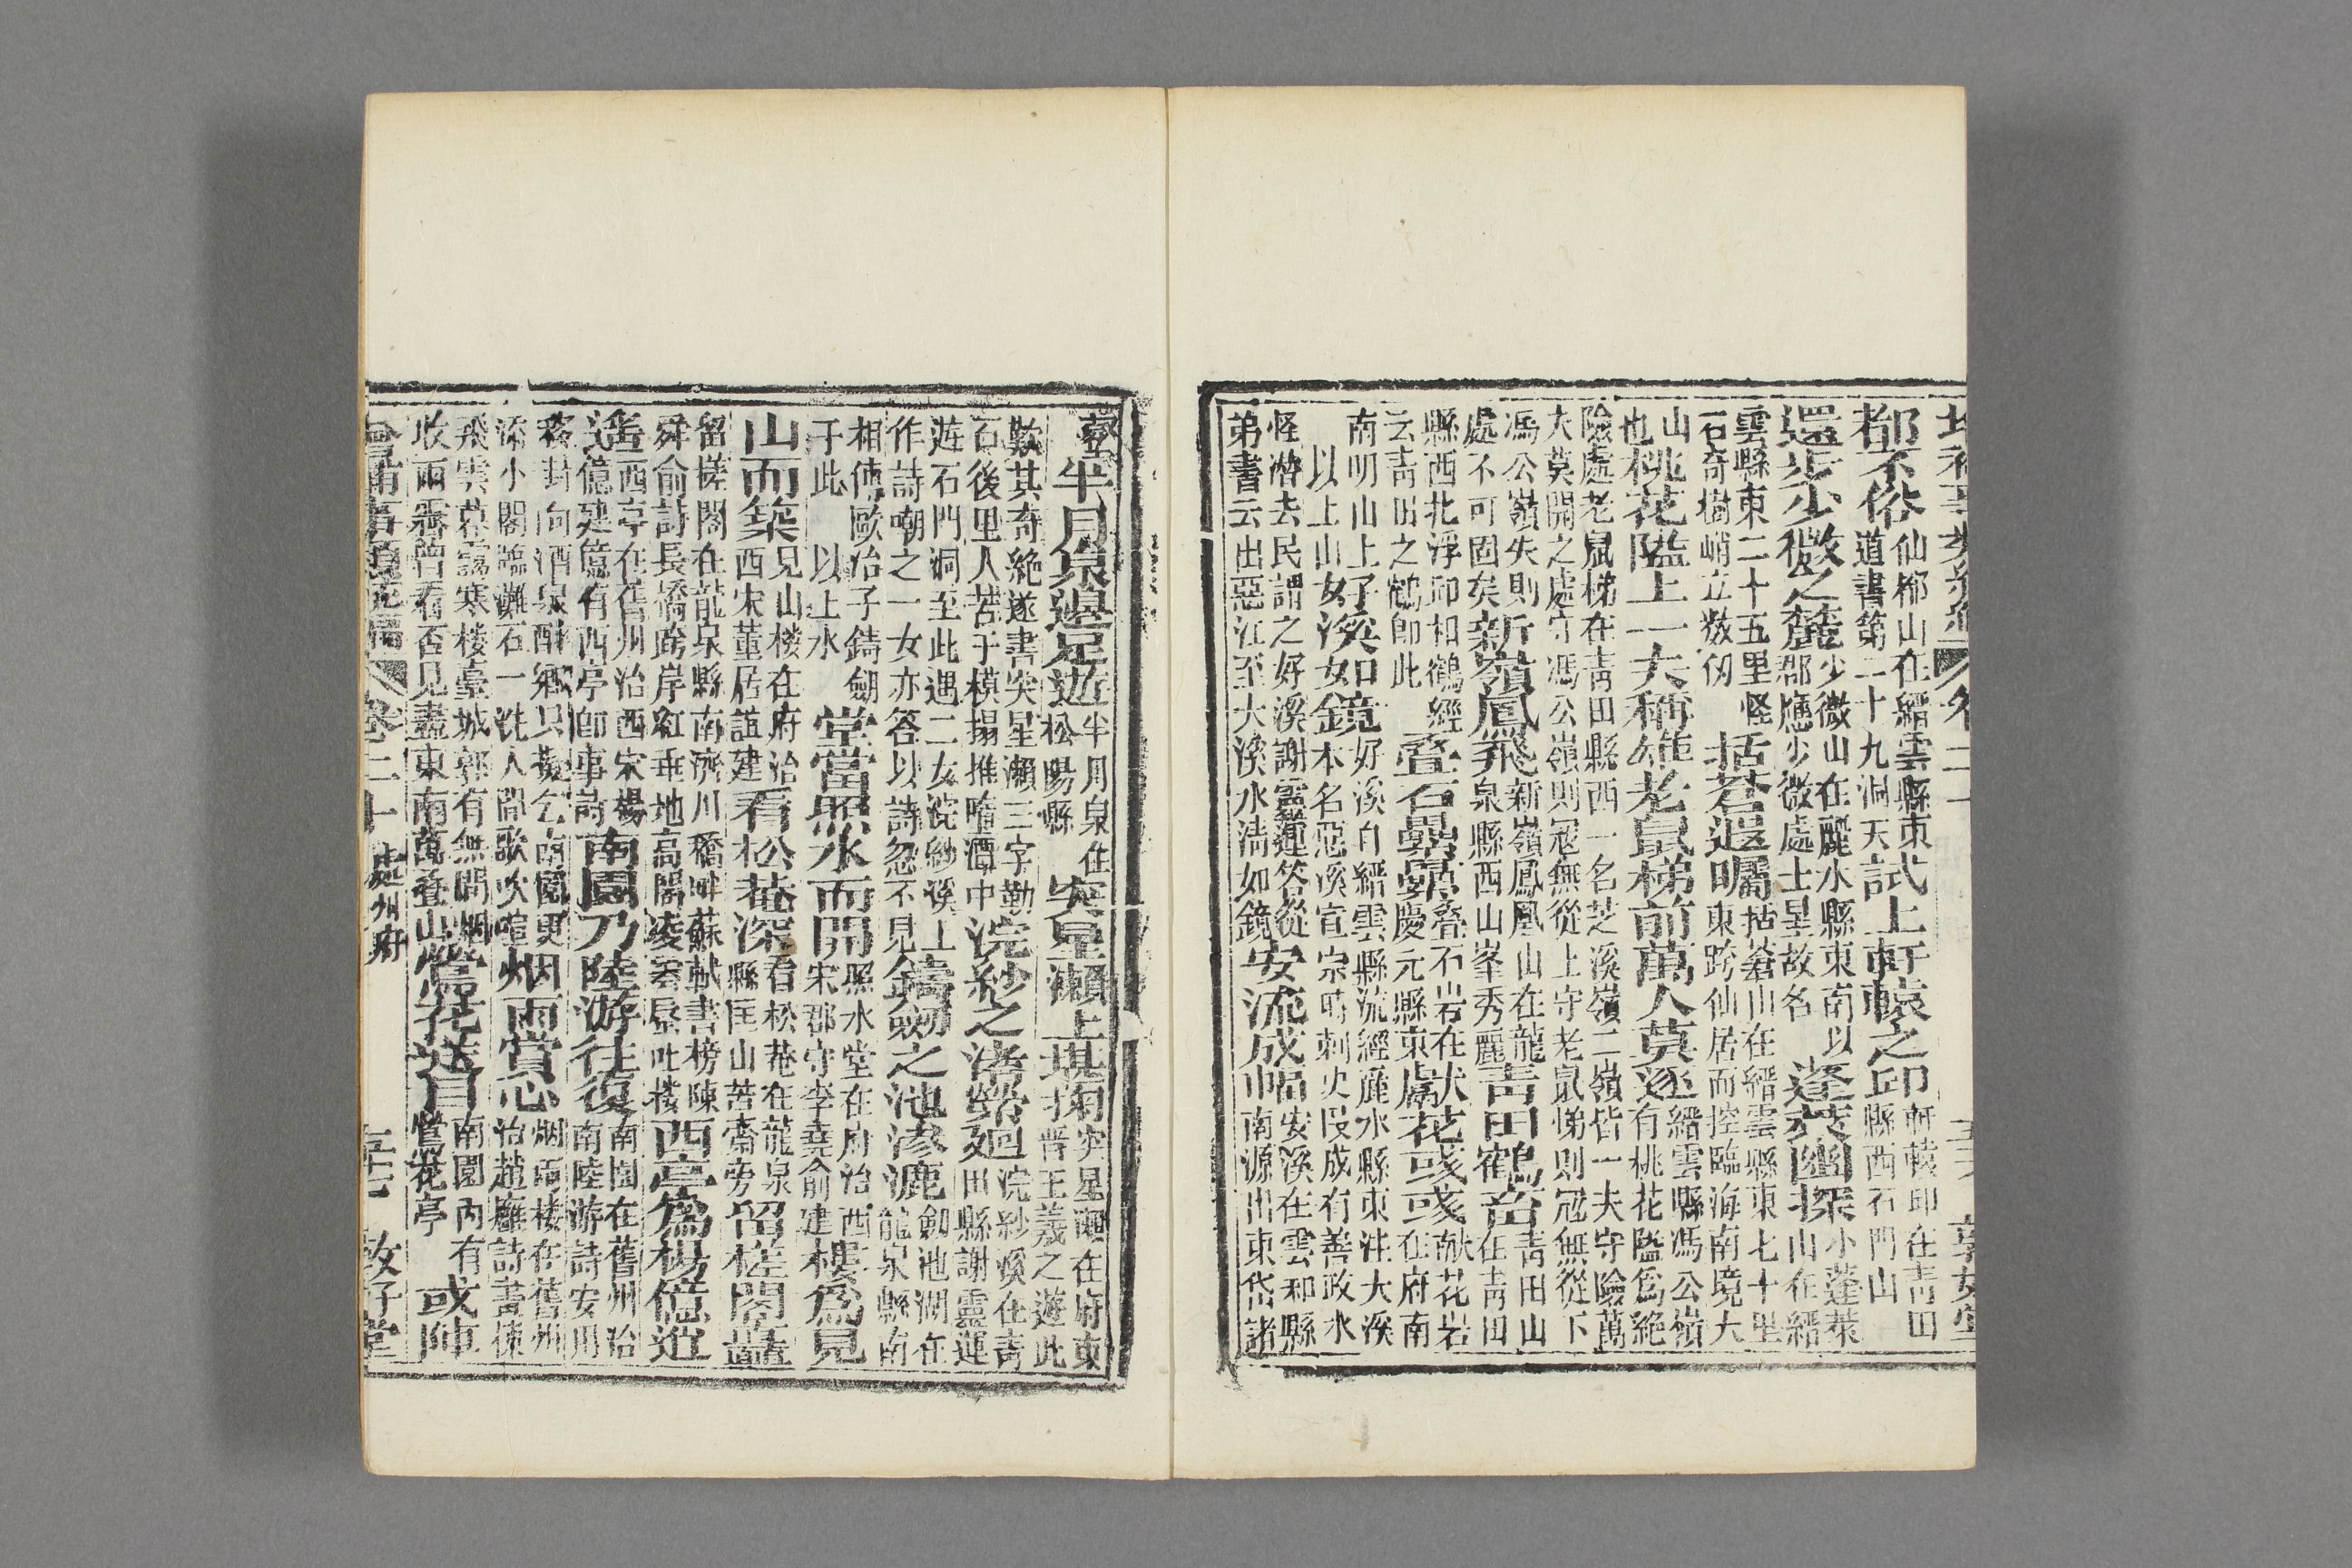 都不俗仙都山在縉雲縣東道書第二十九洞天試上軒轅之邱軒轅邱在靑田縣西石門山
還步少微之麓少微山在麗水縣東南以郡應少微處士星故名　蓬萊幽探小蓬萊山在縉
雲縣東二十五里怪石奇樹峭立數仞　括蒼遐矚括蒼山在縉雲縣東七十里東跨仙居而控臨海南境大
山也桃花隘上一夫稱雄老鼠梯前萬人莫逐縉雲縣馮公嶺有桃花隘爲絕
險處老鼠梯在靑田縣西一名芝溪嶺二嶺皆一夫守險萬
大莫開之處守馮公嶺則冦無從上守老鼠梯則冦無從下
馮公嶺失則處不可固矣新嶺鳳飛新嶺鳳凰山在龍泉縣西山峯秀麗靑田鶴唳在靑田
縣西北浮邱相鶴經云靑田之鶴卽此　疊石纍纍疊石岩在慶元縣東獻花彧彧献花岩在府南
南明山上好溪如鏡好溪自縉雲縣流經麗水縣東注大溪
以上山女本名惡溪宣宗時刺史段成有善政水
怪潛去民謂之好溪謝靈運答從弟書云出惡江至大溪水淸如鏡安流成
南源出東岱諸
登半月泉邊足遊半月泉在松陽縣　突星瀨上堪掬突星瀨在府東晋王羲之遊此
歎其奇絕遂書突星瀨三字勒石後里人苦于模搨推墮潭中浣紗之渚縈廻浣紗溪在靑田縣謝靈運
遊石門洞至此遇二女浣紗溪上作詩嘲之一女亦答以詩忽不見鑄劒之池滲漉劒池湖在龍泉縣南
相傳歐冶子鑄劒于此　以上水　堂當照水而開照水堂在府治西宋郡守李堯俞建樓爲見
山而築見山樓在府治西宋董居誼建看松菴深看松菴在龍泉縣匡山苦齋旁留槎閣矗
留槎閣在龍泉縣南濟川橋畔蘇軾書榜陳舜俞詩長橋跨岸虹垂地高閣凌雲蜃吐樓西亭爲楊億逍
遙西亭在舊州治西宋楊億建億有西亭卽事詩南園乃陸游往復南園在舊州治南陸游詩安用
移封向酒泉醉鄉只擬乞南園更添小閣臨灘石一洗人間歌吹喧烟雨賞心烟雨樓在舊州治趙廱詩畫棟
飛雲暮靄寒樓臺城郭有無間烟收雨霽曾看否見盡東南萬疊山鶯花送目南園內有鶯花亭　或陣
卷二十　處州府　敏好堂